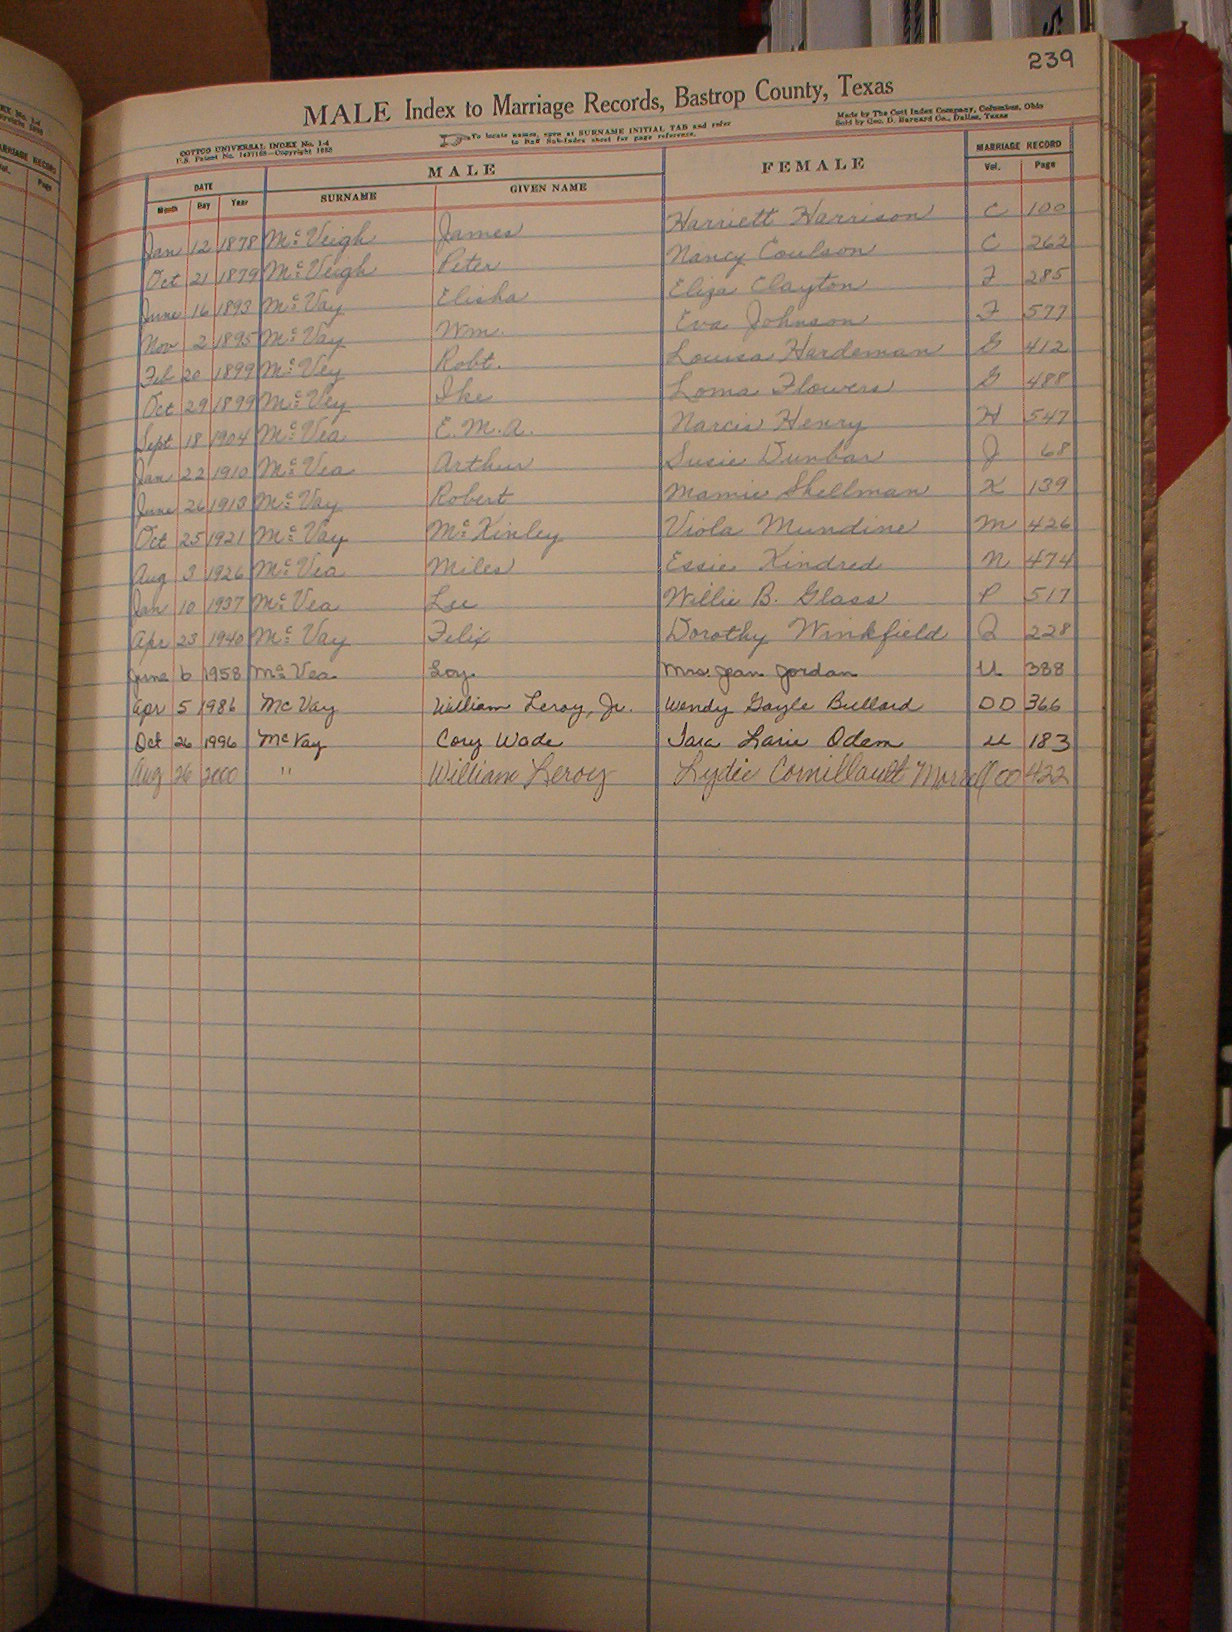 239
MALE Index to Marriage Records, Bastrop County, Texas
COTTCO UNIVERSAL INDEX No. 1-4
U.S. Patent No. 1437168—Copyright 1888
To locate names, open at SURNAME INITIAL TAB and refer
to Buff Sub-Index sheet for page reference.
Made by The Cott Index Company, Columbus, Ohio
Sold by Geo. D. Barnard Co., Dallas, Texas
DATE MALE FEMALE MARRIAGE RECORD
Month Day Year SURNAME GIVEN NAME Vol. Page
Jan 12 1878 McVeigh James Harriett Harrison C 100
Oct 21 1879 McVeigh Peter Nancy Coulson C 262
June 16 1893 McVay Elisha Eliza Clayton F 285
Nov 2 1895 McVay Wm. Eva Johnson F 577
Feb 20 1899 McVey Robt. Louisa Hardeman G 412
Oct 29 1899 McVey Ike Loma Flowers G 488
Sept 18 1904 McVea E.M.A. Narcis Henry H 547
Jan 22 1910 McVea Arthur Susie Dunbar J 68
June 26 1913 McVay Robert Mamie Shellman K 139
Oct 25 1921 McVay McKinley Viola Mundine M 426
Aug 3 1926 McVea Miles Essie Kindred N 474
Jan 10 1937 McVea Lee Willie B. Glass P 517
Apr 23 1940 McVay Felix Dorothy Winkfield Q 228
June 6 1958 McVea Loy Mrs. Jean Jordan U 388
Apr 5 1986 McVay William Leroy, Jr. Wendy Gayle Bullard DD 366
Oct 26 1996 McVay Cory Wade Tara Larie Odem U 183
Aug 26 2000 " William Leroy Lydie Cornillault 00 422
MARRIAGE RECORD
Vol. Page